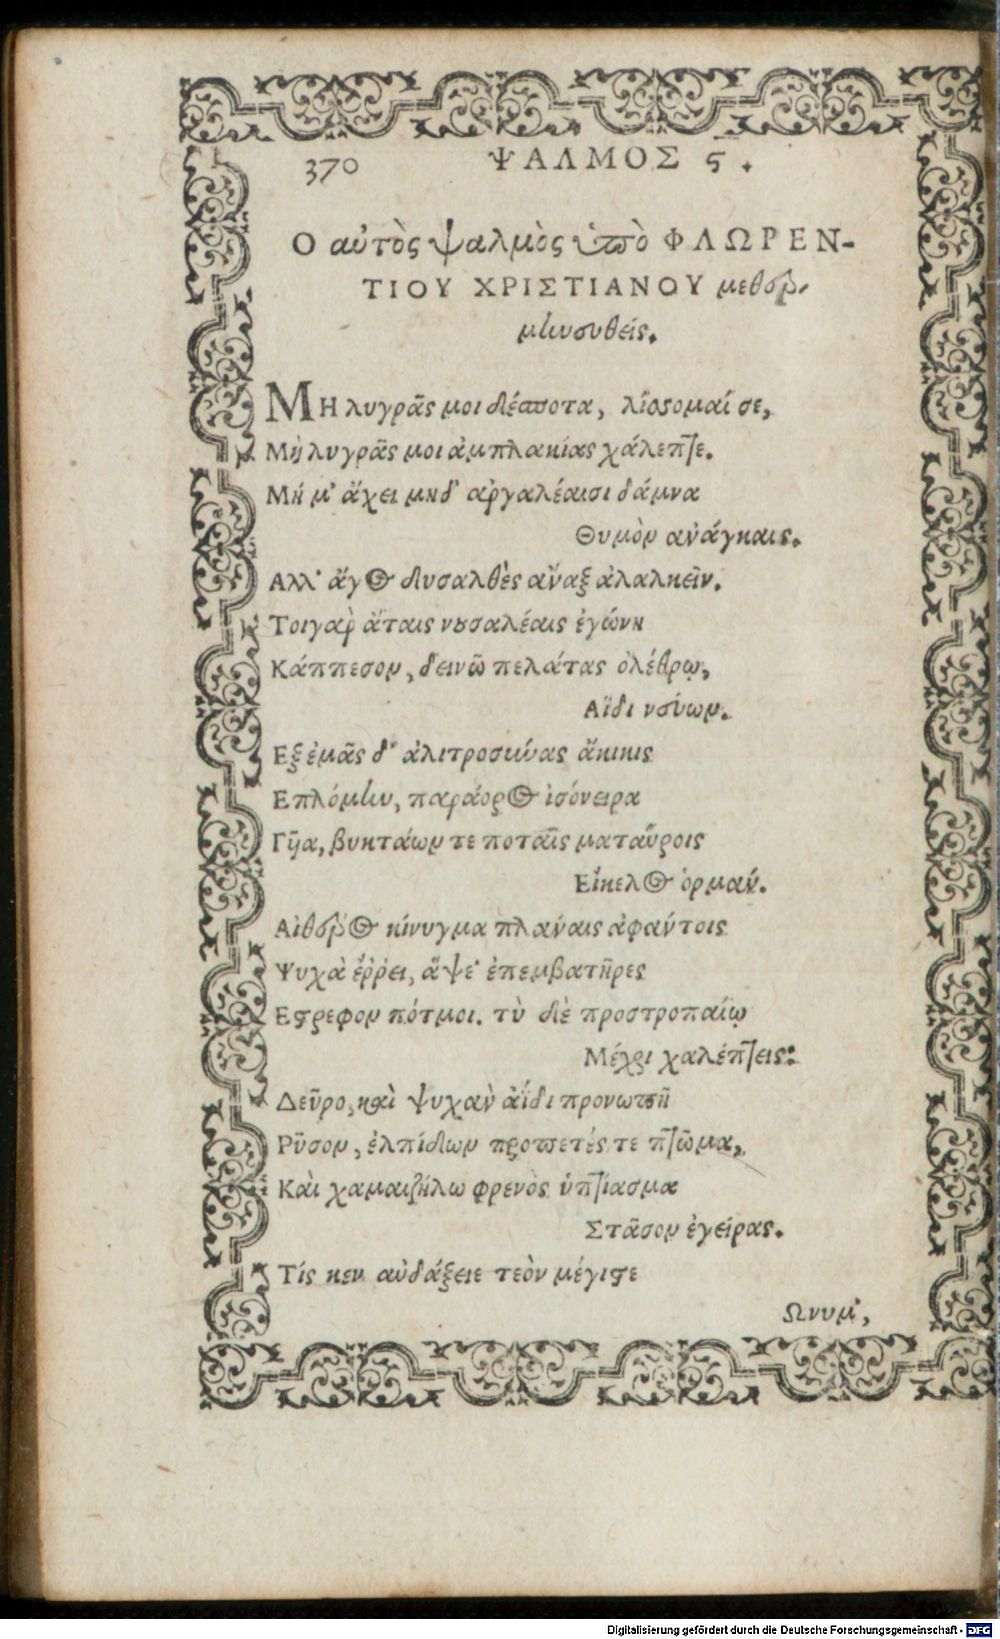 370 ΨΑΛΜΟΣ ϛ.
Ο αὐτὸς ψαλμὸς ὑπὸ ΦΛΩΡΕΝ-
ΤΙΟΥ ΧΡΙΣΤΙΑΝΟΥ μεθερ-
μηνευθείς.
ΜΗ λυγρᾶς μοι δέσποτα, λίσσομαί σε,
Μὴ λυγρᾶς μοι ἀμπλακίας χάλεπτε.
Μή μ' ἄχει μηδ' ἀργαλέαισι δάμνα
Θυμὸν ἀνάγκαις.
Αλλ' ἄγος δυσαλθὲς ἄναξ ἀλαλκεῖν.
Τοιγαρ ἄταις νουσαλέαις ἐγώνη
Κάππεσον, δεινῶ πελάτας ὀλέθρῳ,
Αἴδι νεύων.
Εξ ἐμᾶς δ' ἀλιτροσύνας ἄκικις
Επλόμην, παράορος ἰσόνειρα
Γῦα, βυκτάων τε ποταῖς ματαύροις
Εἴκελος ὁρμάν.
Αἰθέρος κίνυγμα πλάναις ἀφάντοις
Ψυχὰ ἔῤῥει, ἅψε' ἐπεμβατῆρες
Εστρεφον πότμοι. τὺ δὲ προστροπαίῳ
Μέχρι χαλέπτεις;
Δεῦρο, καὶ ψυχὰν ἀΐδι προνωπῆ
Ρῦσον, ἐλπίδων προπετές τε πτῶμα,
Καὶ χαμαιζήλω φρενὸς ὑπτίασμα
Στᾶσον ἐγείρας.
Τίς κεν αὐδάξειε τεὸν μέγιστε
Ωνυμ',
Digitalisierung gefördert durch die Deutsche Forschungsgemeinschaft - DFG